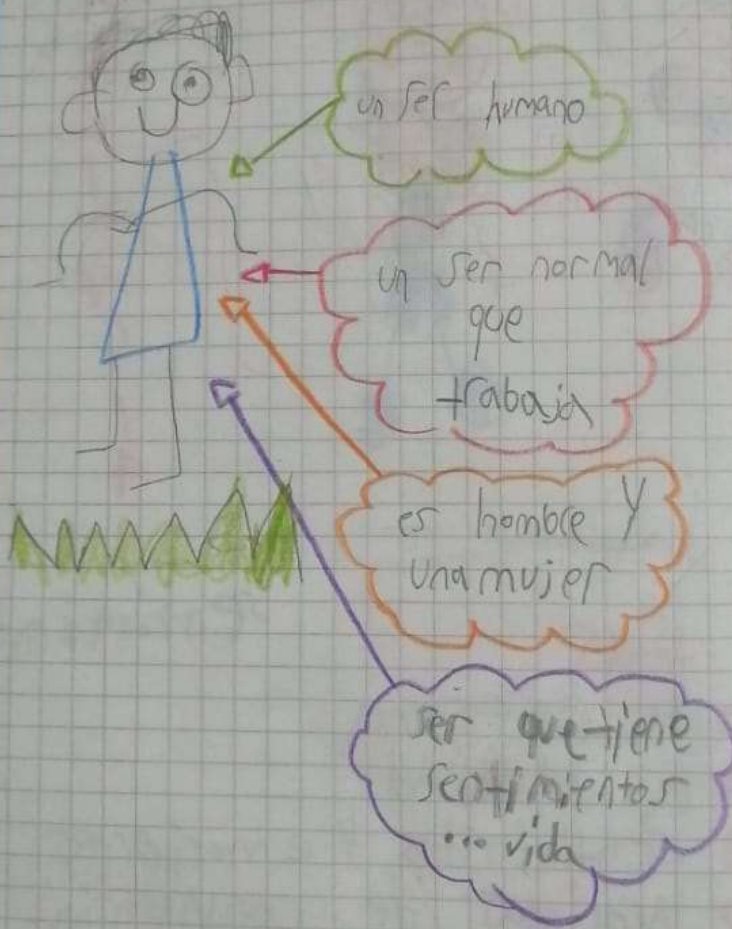 un ser humano
un ser normal
que
trabaja
es hombre y
una mujer
ser que tiene
sentimientos
... vida